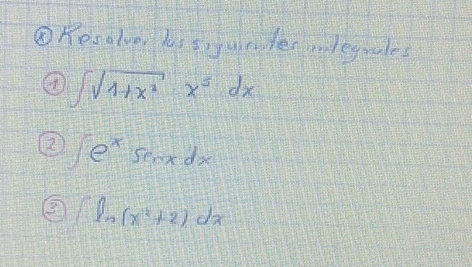 ⊗ Resolver las siguientes integrales
① ∫√(1+x²) x⁵ dx
② ∫e^x senx dx
③ ∫ln(x²+2) dx